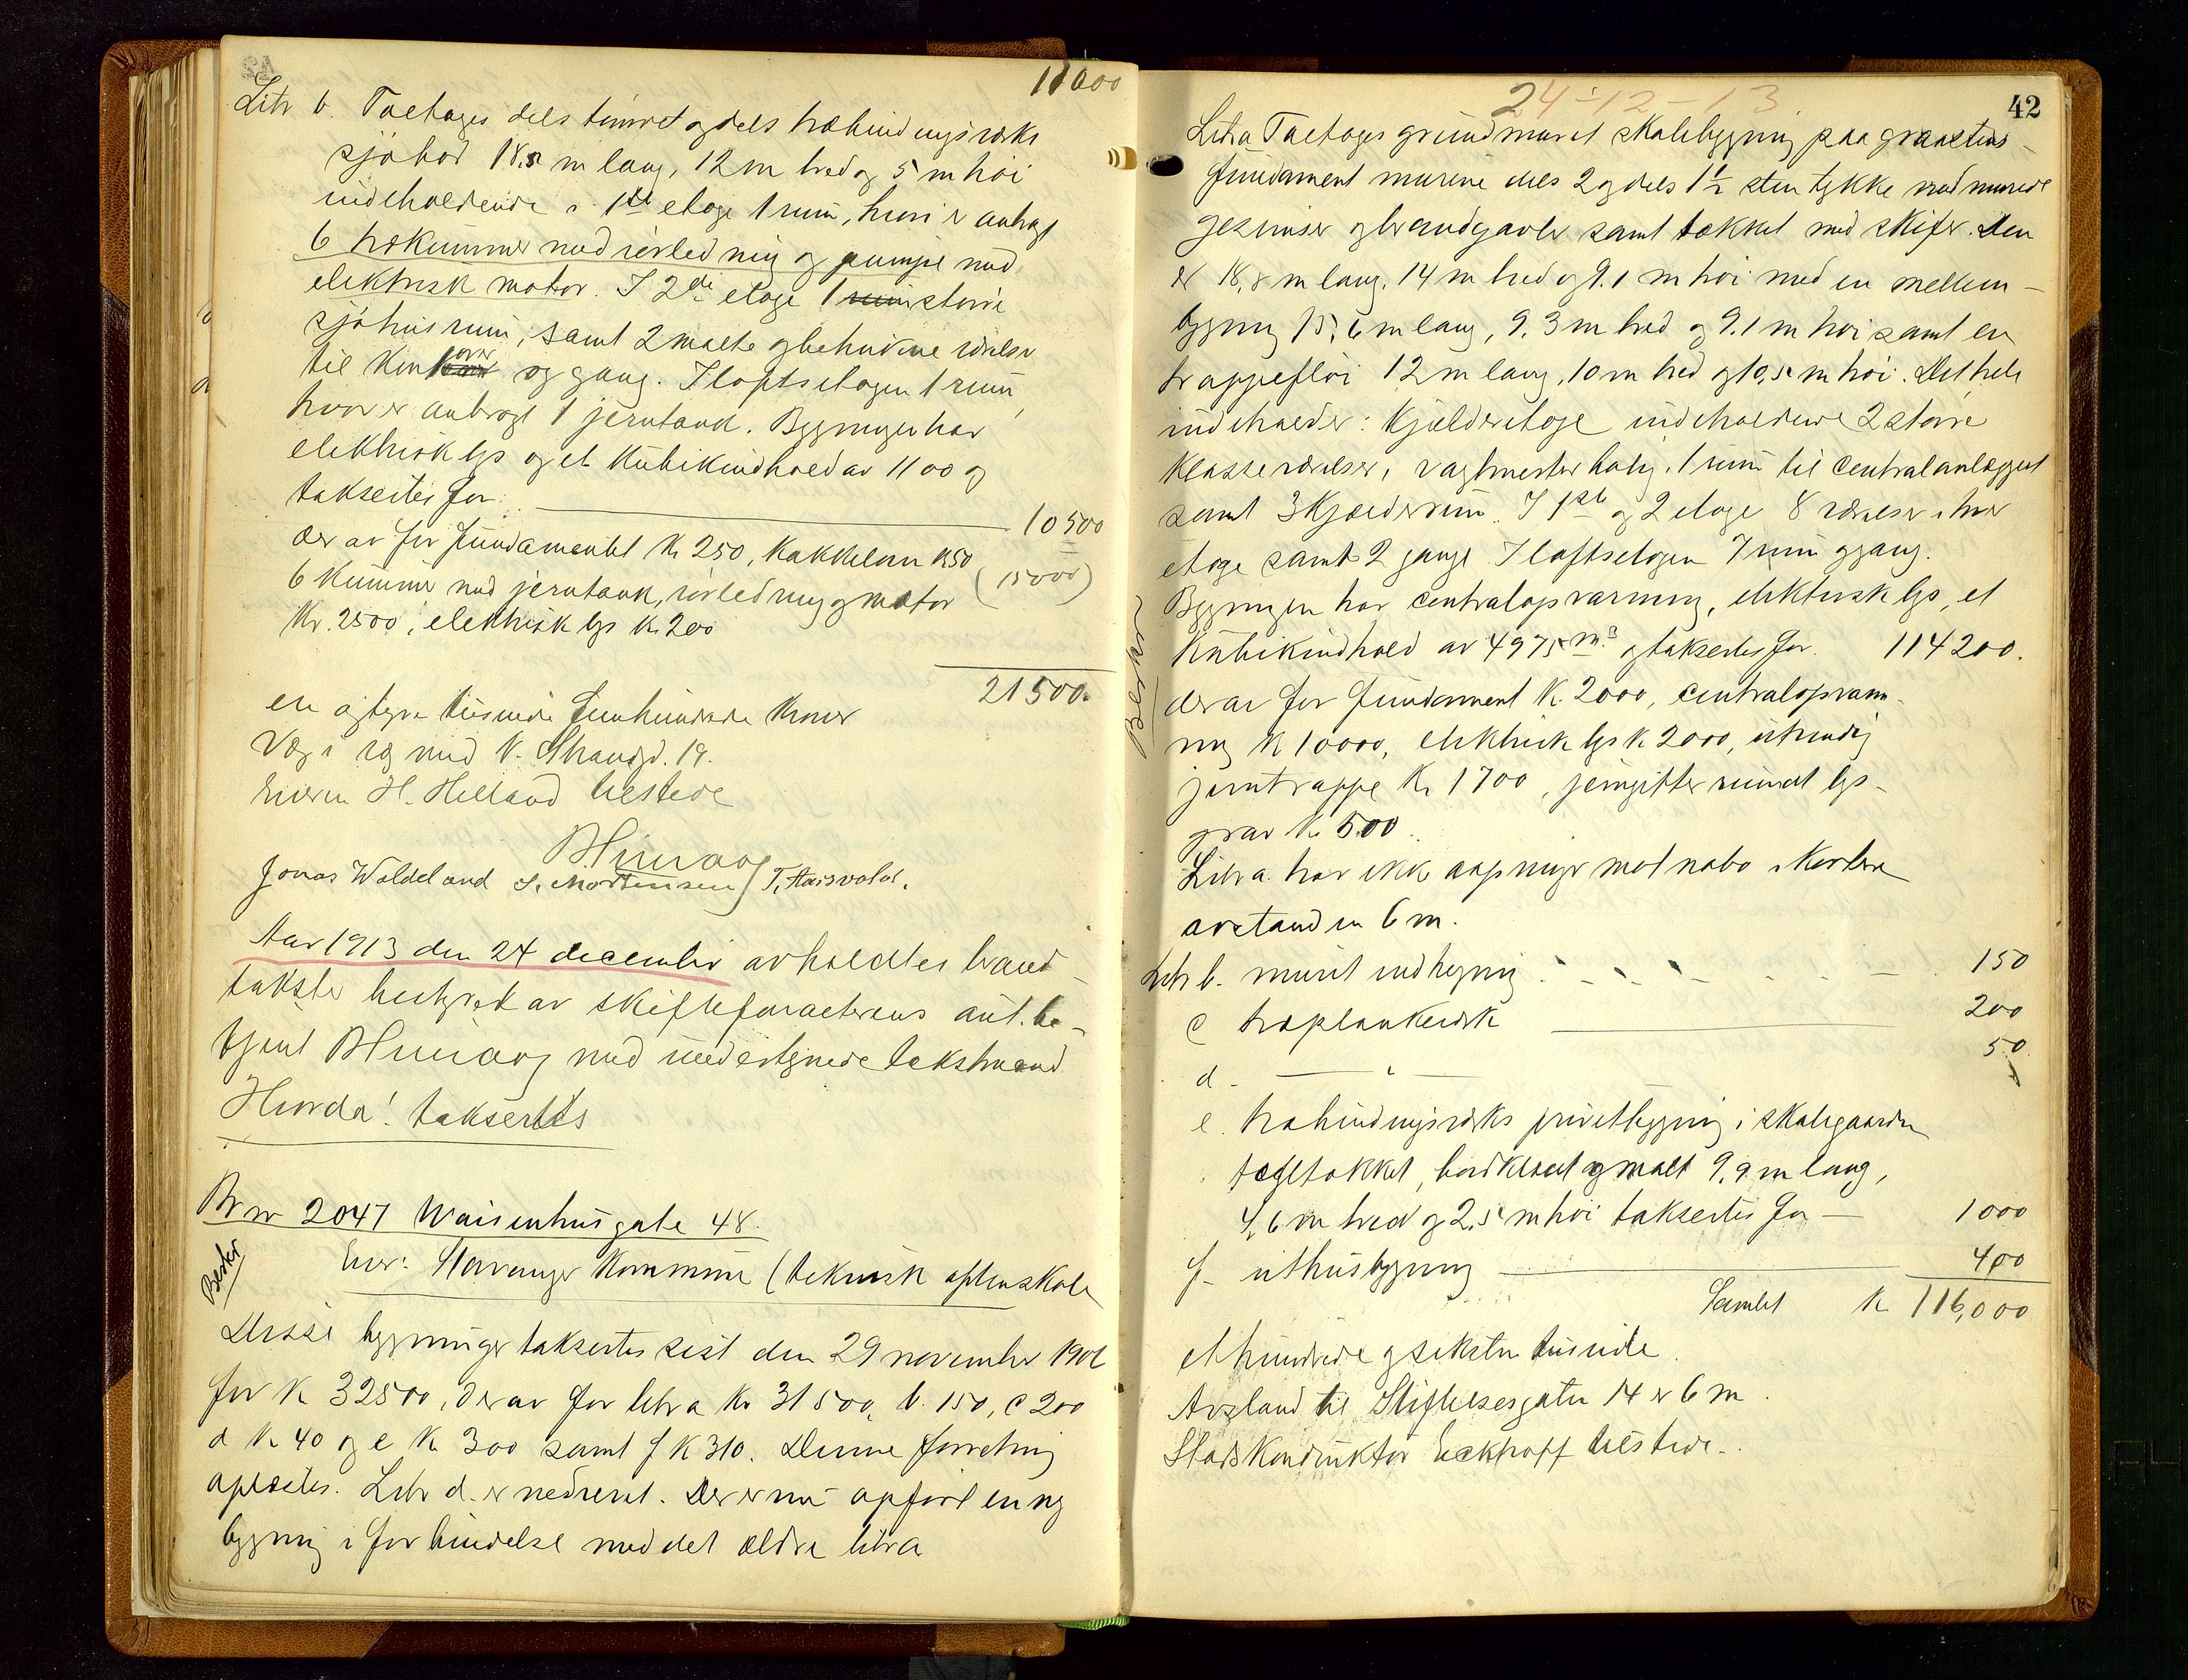 11000
Litr b. Toetages dels tømret og dels træbindingsværks
sjøbod 18,5 m lang, 12 m bred og 5 m høi
indeholdende i 1ste etage 1 rum, hvori er anbragt
6 trækummer med rørledning og pumpe med
elektrisk motor. I 2den etage 1 rum større
sjøhusrum, samt 2 malte og betrukne værelser
til kontor og gang. I loftsetagen 1 rum,
hvor er anbragt 1 jerntank. Bygningen har
elektrisk lys og et kubikindhold av 1100 og
takseres for 10500
der av for fundamentet Kr 250, kakkelovn K 50 (15000)
6 kummer med jerntank, rørledning og motor
Kr. 2500, elektrisk lys Kr 200
21500.
en og tyve tusinde femhundrede kroner
Væg i væg med N. Strandg. 19.
Eieren H. Helland tilstede
Jonas Waldeland S. Mortensen T. Hausvold.
Aar 1913 den 24 december avholdtes brand-
takster bestyret av skifteforvalterens aut. be-
tjent BHuuaas med undertegnede takstmænd
Hvorda! taksertes
Br nr 2047 Waisenhusgate 48.
Besder
Eier: Stavanger Kommune (teknisk aftenskole
Disse bygninger taksertes sist den 29 november 1906
for K 32500, derav for litra Kr 31500, b. 150, c 200
d K 40 og e K 300 samt f K 310. Denne forretning
opløstes. Litr d. er nedrevet. Der er nu opført en ny
bygning i forbindelse med det ældre litra
24-12-13
42
Litra Toetages grundmuret skolebygning paa graastens-
fundament murene dels 2 og dels 1½ sten tykke med murede
gesimser og brandgavler samt tækket med skifer. Den
er 18,8 m lang, 14 m bred og 9.1 m høi med en mellem-
bygning 15,6 m lang, 9,3 m bred og 9.1 m høi samt en
trappefløi 12 m lang, 10 m bred og 10,5 m høi. Det hele
indeholder: Kjælderetage indeholdende 2 større
klasseværelser, vagtmesterbolig, 1 rum til centralanlægget
samt 3 kjælderrum. I 1ste og 2 etage 8 værelser i hver
etage samt 2 gange. I loftsetagen 7 rum og gang.
Bygningen har centralopvarming, elektrisk lys, et
kubikindhold av 4975 m³ og taksertes for 114200.
derav for fundament K. 2000, centralopvarm-
ing K 10000, elektrisk lys K 2000, utvendig
jerntrappe Kr 1700, jerngitter rundt lys-
grav Kr 500.
Litra a har ikke aapninger mot nabo i kortere
avstand en 6 m.
Litr b. muret indhegning 150
c træplankeværk 200
d - — " — 50
e. træbindingsværks privetbygning i skolegaarden
tegltækket, bordklædt og malt 9,9 m lang,
4,6 m bred og 2,5 m høi taksertes for — 1000
f- uthusbygning 400
Samlet K 116,000
et hundrede og seksten tusinde.
Avstand til Stiftelsesgaten 14 er 6 m.
Stadskonduktør Eckhoff tilstede.